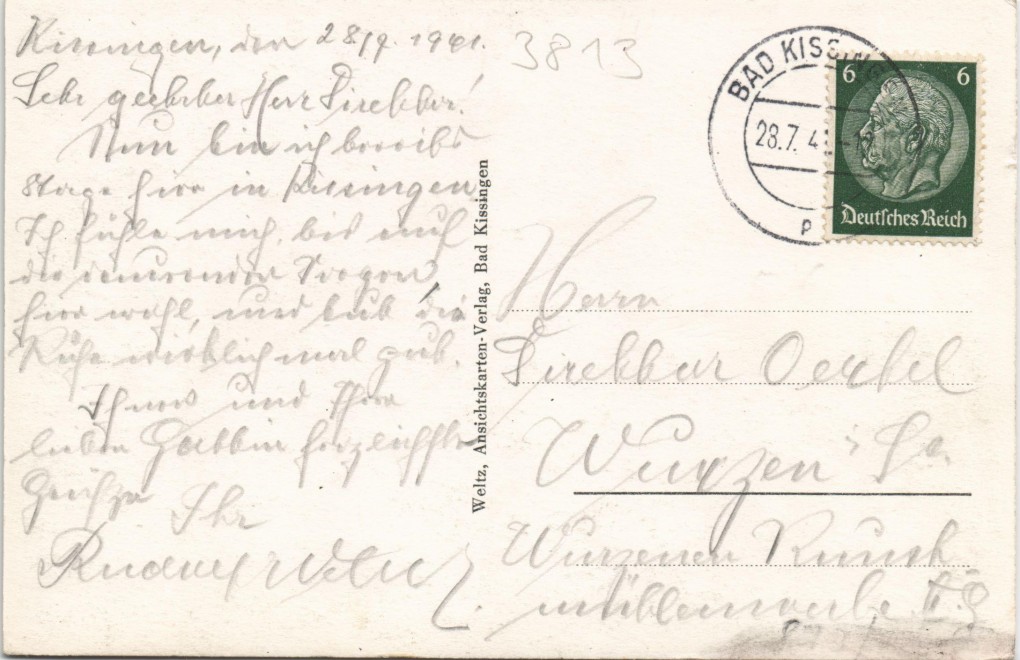 Kissingen, den 28/7. 1941.
Sehr geehrter Herr Direktor!
Nun bin ich bereits
Tage hier in Kissingen.
Ich fühle mich, bis auf
die dauernden
hier wohl, und tut die
Ruhe wirklich mal gut.
Ihnen und Ihrer
lieben Gattin herzlichste
Grüße
Ihr
Rudolf
3813
BAD KISSING
28.7.4
6 6
Deutsches Reich
Weltz, Ansichtskarten-Verlag, Bad Kissingen
Herrn
Direktor Oertel
Wurzen Sa.
Wurzener Kunst
mühlenwerke